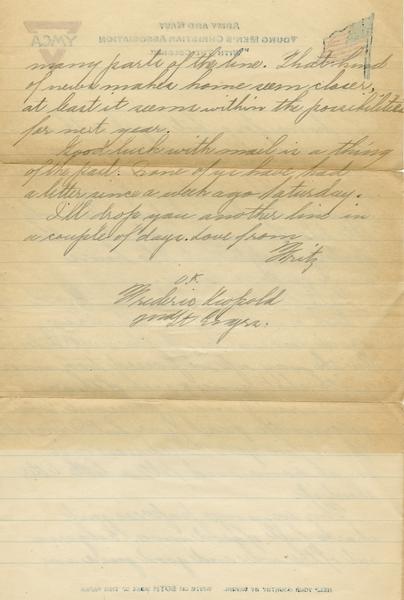 many parts of the line. That kind
of news makes home seem closer,
at least it seems within the possibilities
for next year.
Good luck with mail is a thing
of the past. None of us have had
a letter since a week ago Saturday.
I'll drop you another line in
a couple of days. Love from
Fritz
O.K.
Frederic Leopold
2nd Lt Engrs.